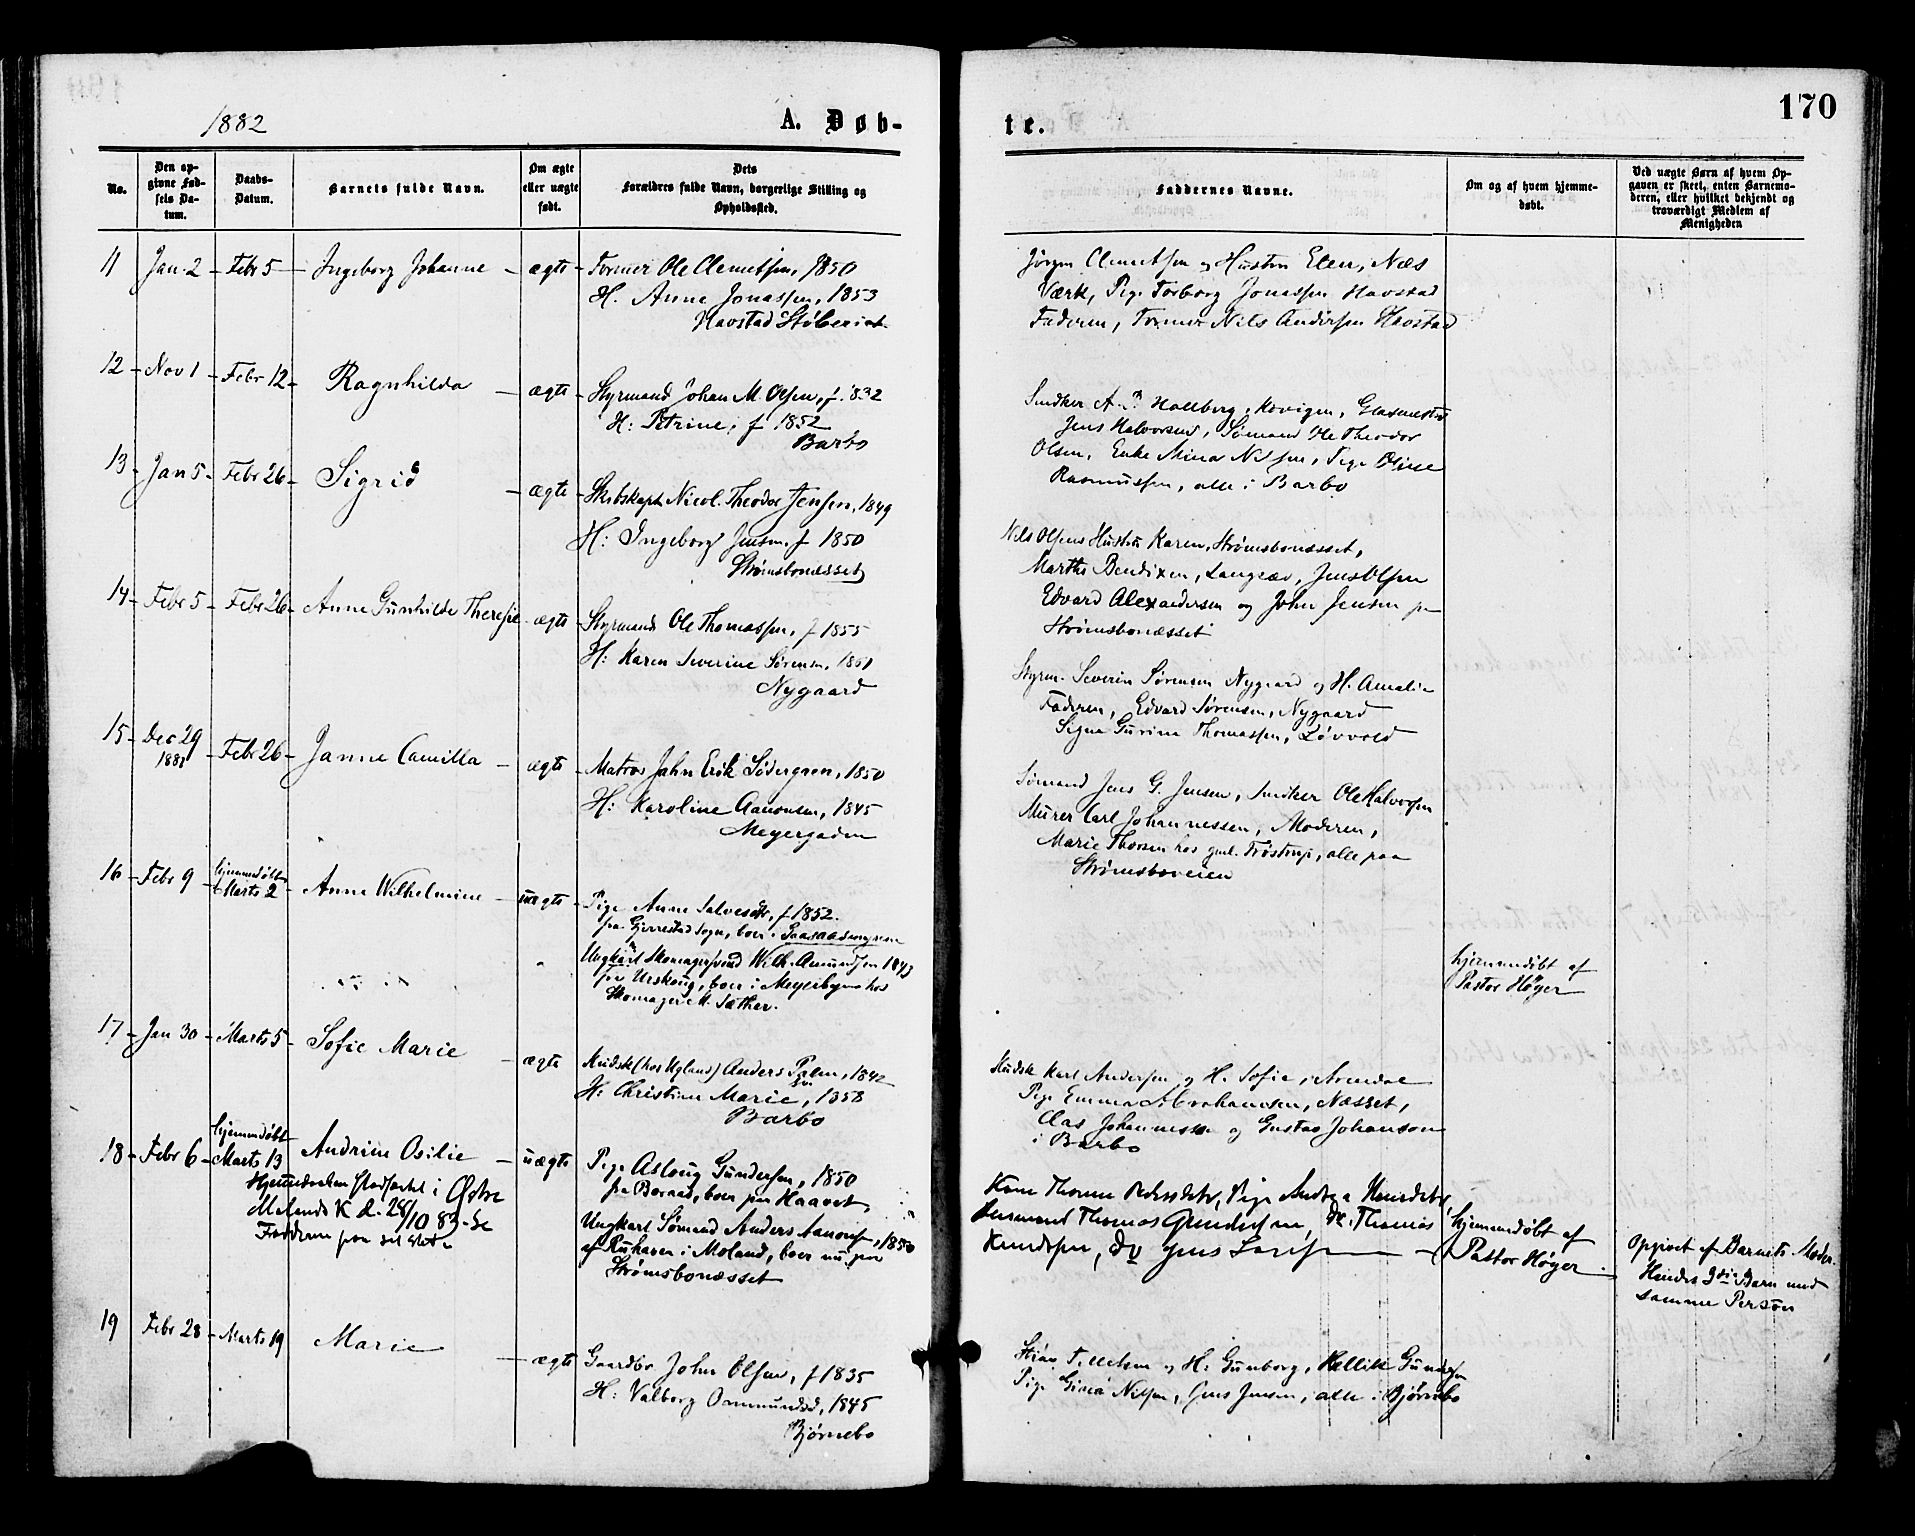 1882
A. Døb-
te.
170
No.
Den op-
givne Fød-
sels Da-
tum.
Daabs-
Datum.
Barnets fulde Navn.
Om ægte
eller uægte
født.
Dets
Forældres fulde Navn, borgerlige Stilling og
Opholdssted.
Faddernes Navne.
Om og af hvem hjemme-
døbt.
Ved uægte Børn af hvem Op-
gaven er skeet, enten Barnemo-
deren, eller hvilket bekjendt og
troværdigt Medlem af
Menigheden
11 Jan. 2 Febr 5 Ingeborg Johanne ægte Former Ole Clemetsen, 1850
H. Anna Jonassen, 1853
Havstad Støberiet
Jørgen Clemetsen og Hustru Elen, Næs
Værk, Pige Torborg Jonassen Havstad
Faderen, Former Nils Andersen Havstad
12 Nov 1 Febr 12 Ragnhilda ægte Styrmand Johan M. Olsen, f. 1832
H: Petrine, f 1852
Barbo
Snedker A. Hallberg, Kovigen, Glasmester
Jens Halvorsen, Sømand Ole Theodor
Olsen, Enke Mina Nilsen, Pige Oline
Rasmussen, alle i Barbo
13 Jan 5 Febr 26 Sigrid ægte Skibskapt Nicol. Theodor Jensen, 1849
H: Ingeborg Jensen, f 1850
Strømsbonæsset
Nils Olsens Hustru Karen, Strømsbonæsset,
Marthe Bendixen, Langsæv, Jens Olsen
Edvard Alexandersen og John Jensen pa
Strømsbonæsset
14 Febr 5 Febr 26 Anne Gunhilde Theresie ægte Styrmand Ole Thomassen, f 1855
H: Karen Severine Sørensen, 1861
Nygaard
Styrm. Severin Sørensen Nygaard og H. Amalie
Faderen, Edvard Sørensen, Nygaard
Signe Gurine Thomassen, Løvvold
15 Dec 29
1881 Febr 26 Janne Camilla ægte Matros John Erik Södergren, 1850
H: Karoline Aanonsen, 1845
Meyergaden
Sømand Jens G. Jensen, Snedker Ole Halvorsen
Murer Carl Johannessen, Moderen,
Marie Thorsen hos gml. Trøstrup, alle paa
Strømsboveien
16 Febr 9 hjemmedøbt
Marts 2 Anna Wilhelmine uægte Pige Anne Salvesdtr, f 1852.
fra Gjerrestad sogn, boer i
Ungkarl Skomagersvend Wilh. Amundsen 1843
fra Urskoug, boer i Meyerbyen hos
Skomager M. Sæther.
hjemmedøbt af
Pastor Høyer
17 Jan 30 Marts 5 Sofie Marie ægte Kudsk (hos Ugland) Anders 1842
H: Christine Marie, 1858
Barbo
Kudsk Karl Andersen og H. Sofie, Arendal
Pige Emma Abrahamsen, Næsset,
Claes Johannessen og Gustav Johanson
i Barbo
18 Febr 6 hjemmedøbt
Marts 13 Andrine Osilie uægte Pige Asloug Gundersen, 1850
fra Boraas, boer paa Haavet
Ungkarl Sømand Anders Aanonsen, 1850
af Kuhaven i Moland, boer nu paa
Strømsbonæsset
Hjemmedaaben stadfæstet i Østre
Molands K d. 28/10 83. Se
Fadderne paa sit Sted
Kone Thomine Pedersdatter, Pige Andrea Knudsdtr,
Sømand Thomas Gundersen, do. Thomas
Knudsen, do Jens
hjemmedøbt af
Pastor Høyer
Opgivet af Barnets Moder.
Hendes 3die Barn med
samme Person
19 Febr 28 Marts 19 Marie ægte Gaardbr. John Olsen, f 1835
H. Valborg Ommundsd, 1845
Bjørnebo
Tellefsen og H: Gunborg, Kellik Gundersen
Pige Gina Nilsen, Jens Jensen, alle i Bjørnebo